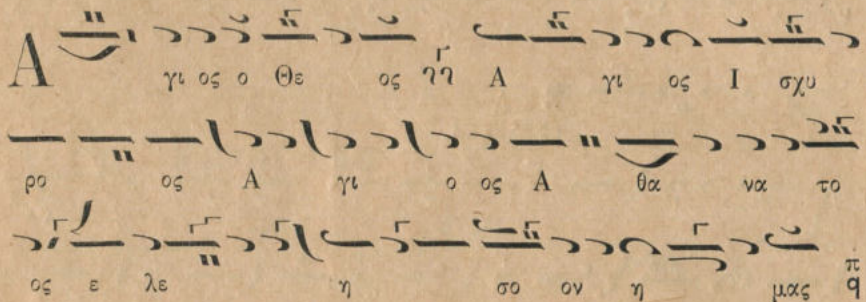 Α γι ος ο Θε ος Α γι ος Ι σχυ
ρο ος Α γι ο ος Α θα να το
ος ε λε η σο ον η μας π q